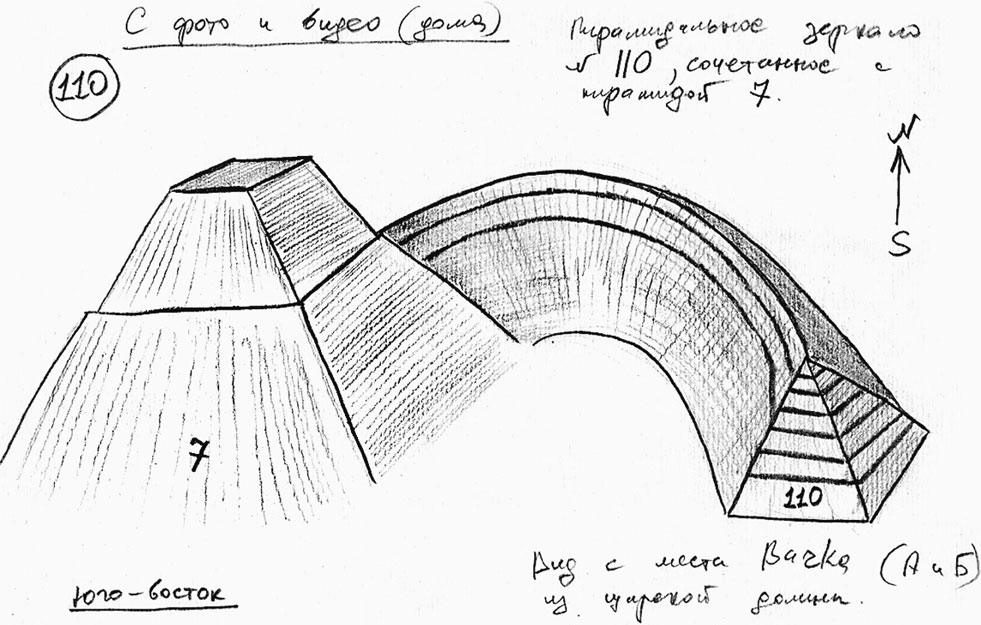 С фото и видео (дома)
110
Пирамидальное зеркало
N 110, сочетанное с
пирамидой 7.
N
S
7
110
Вид с места Вачка (А и Б)
из широкой долины.
Юго-восток